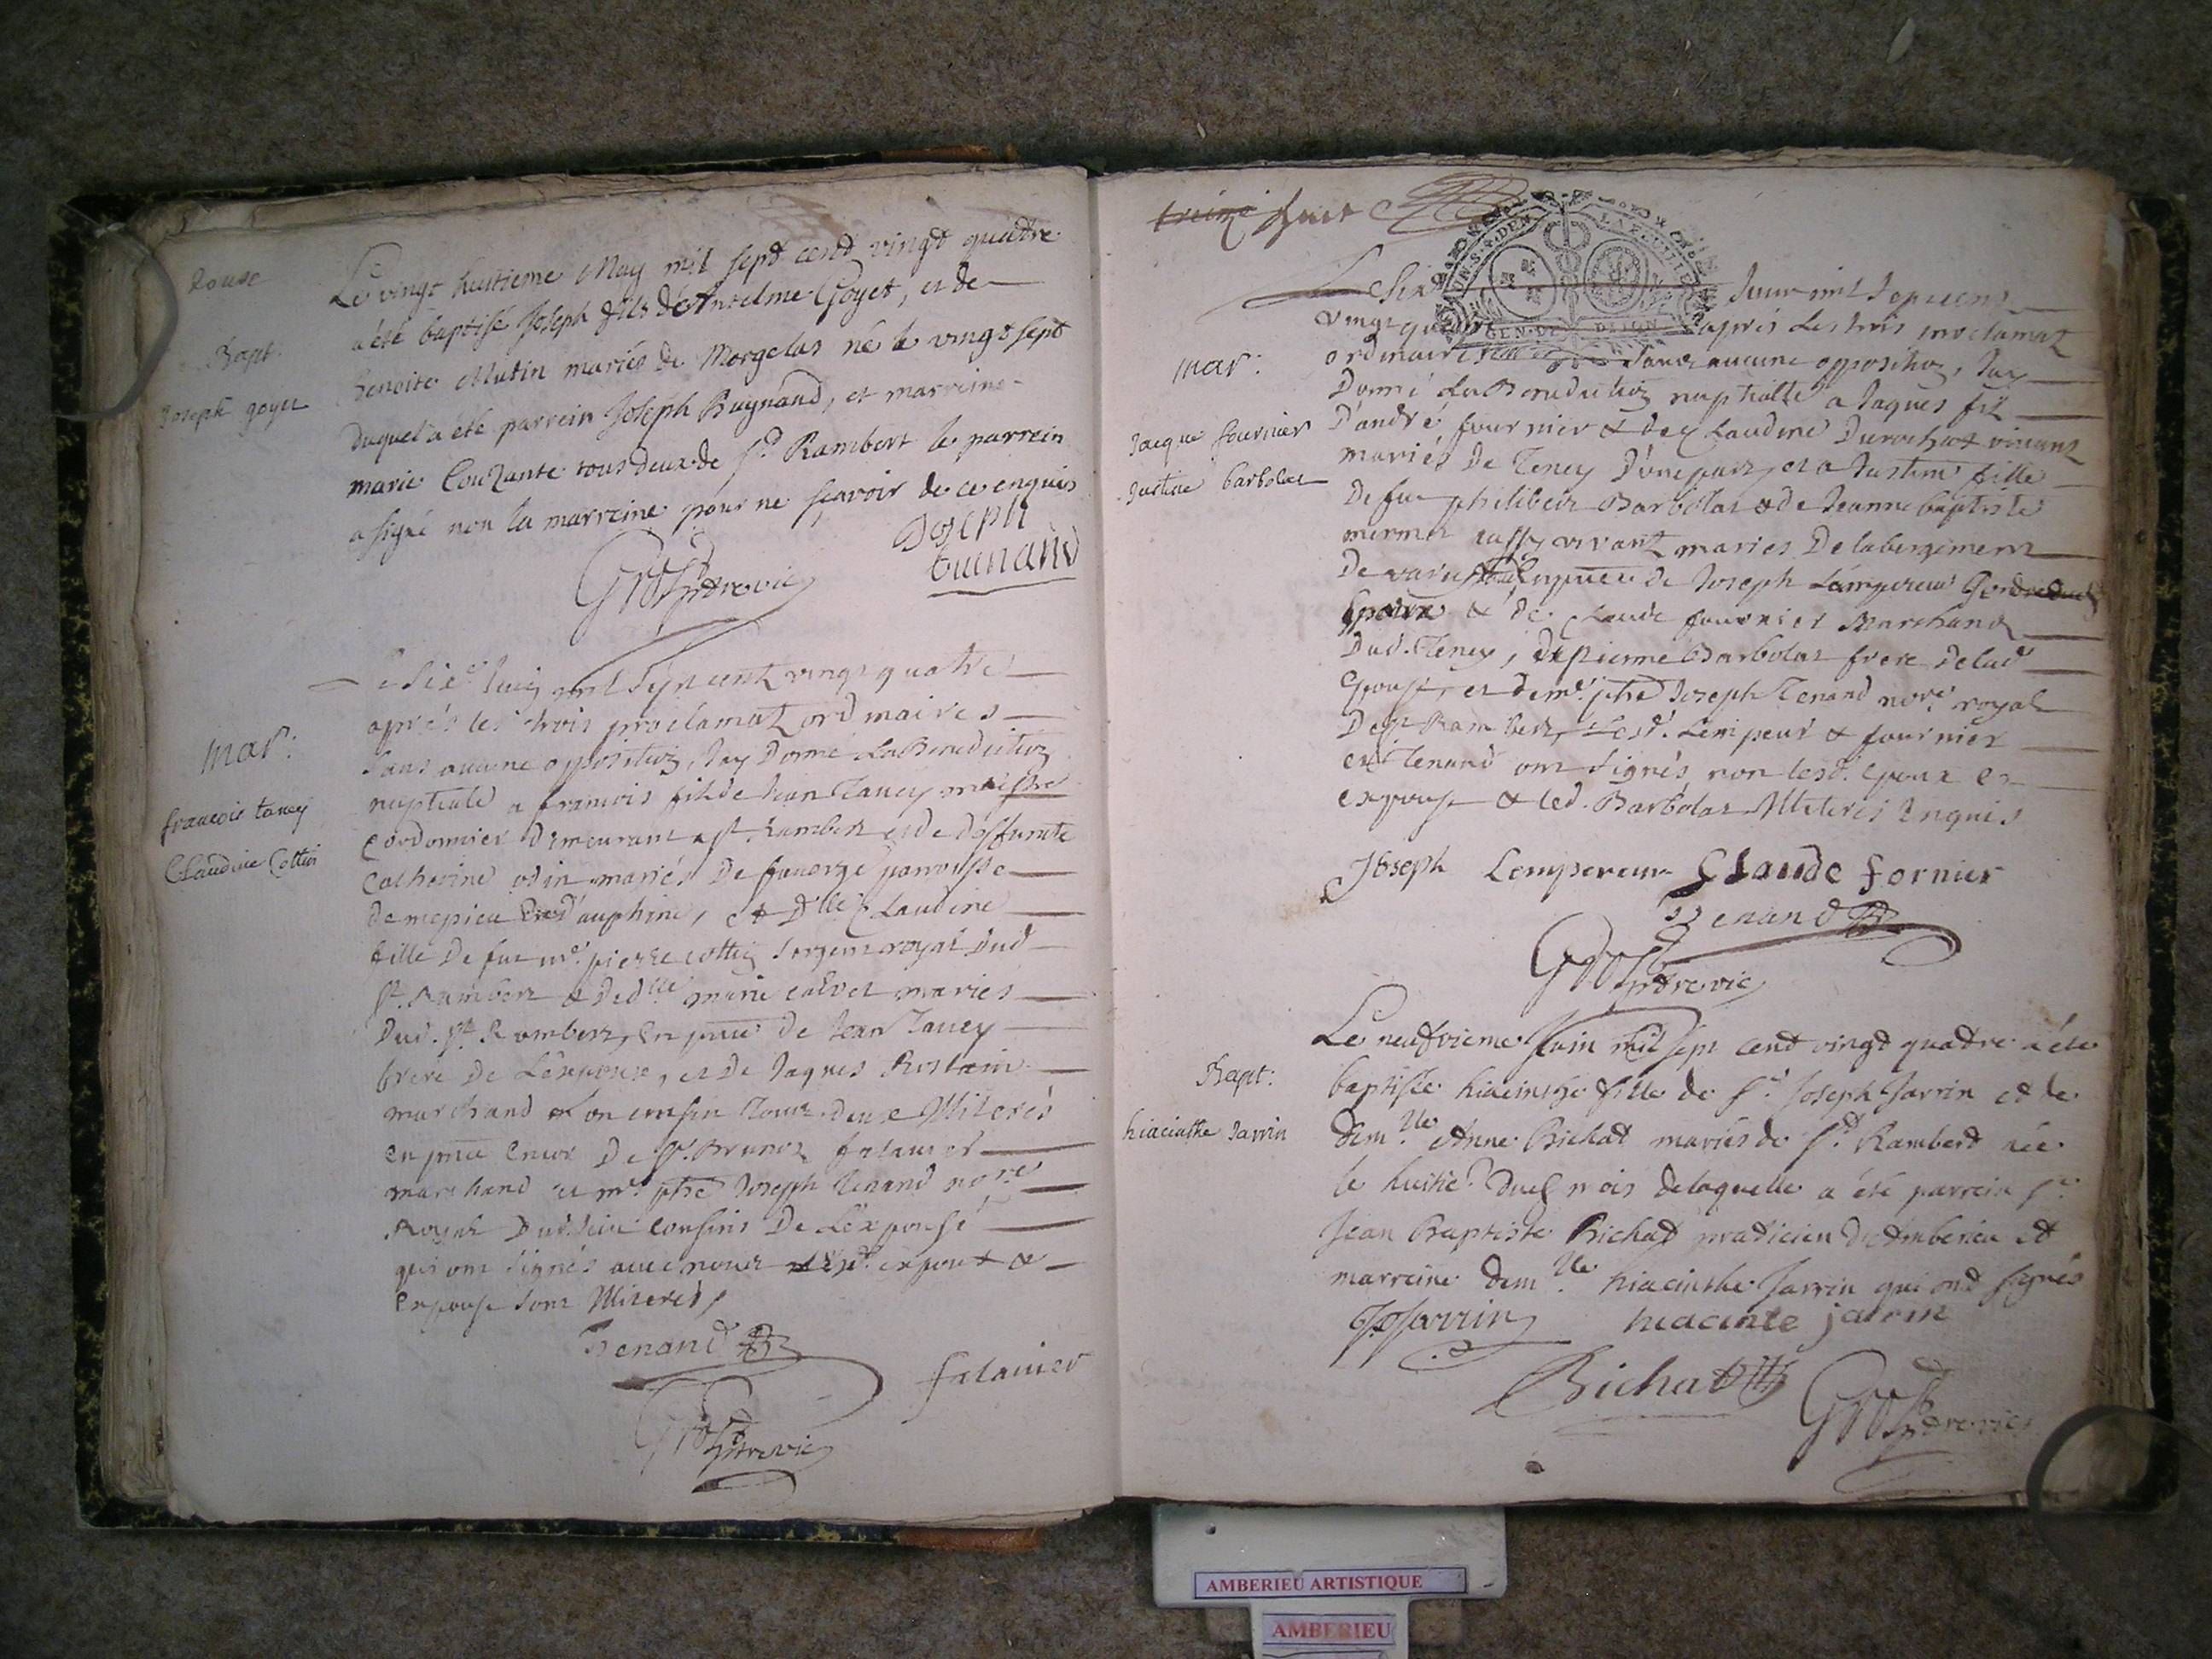 Bapt.
Joseph goyet
Le vingt huitieme May mil sept cent vingt quatre
a été baptisé Joseph fils de Antelme Goyet, et de
Benoite Mutin mariés de Morgelas né le vingt sept
duquel a été parrein Joseph Bugnand, et marreine
marie Couzante tous deux de St Rambert le parrein
a signé non la marreine pour ne sçavoir de ce enquis
Joseph
Grospdrevic
mar:
francois tancy
Claudine Cottin
Le six.e Juin mil sept cent vingt quatre
aprés les trois proclamat ordinaires
sans aucune opposition, Jay Donné La Benediction
nuptiale a francois fils de Jean Tancy maistre
Cordonnier demeurant a St Rambert et de deffuncte
Catherine odin mariés De faverge parroisse
de mepieu en d'auphiné, et Dlle Claudine
fille De feu me. pierre cottin sergent royal dud
St. Rambert & de dlle marie calvet mariés
Dud. St Rambert, En pnce de Jean Tancy
frere De L'expoux, et De Jaques Rostain
marchand son cousin Tous deux Illiterés
En pnce encor De Sr. Brunoz falavier
marchand et me. phe Joseph Tenand nore
Royal Dud lieu cousins De L'expouse
qui ont signés avec nous expoux &
Expouse sont Illiterés,
Tenand
falavier
Grospdrevic
treize huit
GEN. DE DIJON
mar:
Jacque fournier
Justine barbolat
Le Six Juin mil Sept cent
vingt quatre aprés Les trois proclamat
ordinaires sans aucune opposition, Jay
Donné La Benediction nuptialle a Jaques fils
D'andré fournier & de Claudine Durochat vivants
mariés De Teney D'une part, et a Justine fille
De feu philibert Barbolat & de Jeanne baptiste
mermet aussy vivant mariés De labergement
De varey En pnce de Joseph Lempereur
& de Claude fournier Marchand
Dud. Teney, de pierre Barbolat frere De lad
Epouse, et de me. phe Joseph Tenand nore royal
De St Rambert, Lesd. Lempeur & fournier
et Tenand ont signés non lesd. Epoux et
expouse & led. Barbolat Illiterés Enquis
Joseph Lempereur Claude fornier
Tenand
Grospdrevic
Bapt:
hiacinthe Jarrin
Le neufvieme Juin mil sept cent vingt quatre a été
baptisée hiacinthe fille de Sr Joseph Jarrin et de
dem.lle Anne Bichat mariés de St Rambert née
le huitie. dud mois de laquelle a été parrein Sr
Jean Baptiste Bichat praticien D'Amberieu et
marreine dem.lle hiacinthe Jarrin qui ont signés
J Jarrin hiacinte jarrin
Bichat
Grospdrevic
AMBERIEU ARTISTIQUE
AMBERIEU